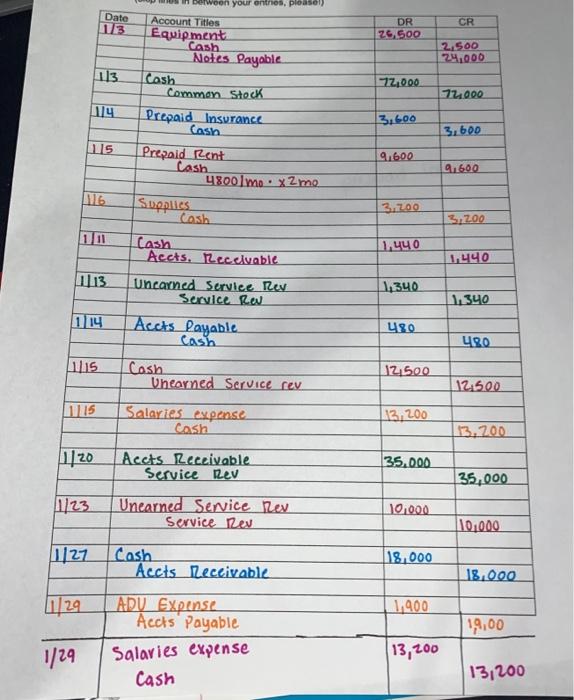 in between your entries, please!)
Date Account Titles DR CR
1/3 Equipment 26,500
Cash 2,500
Notes Payable 24,000
1/3 Cash 72,000
Common Stock 72,000
1/4 Prepaid Insurance 3,600
Cash 3,600
1/5 Prepaid Rent 9,600
Cash 9,600
4800/mo. x2mo
1/6 Supplies 3,200
Cash 3,200
1/11 Cash 1,440
Accts. Receivable 1,440
1/13 Unearned Service Rev 1,340
Service Rev 1,340
1/14 Accts Payable 480
Cash 480
1/15 Cash 12,500
Unearned Service rev 12,500
1/15 Salaries expense 13,200
Cash 13,200
1/20 Accts Receivable 35,000
Service Rev 35,000
1/23 Unearned Service Rev 10,000
Service Rev 10,000
1/27 Cash 18,000
Accts Receivable 18,000
1/29 ADV Expense 1,900
Accts Payable 19,00
1/29 Salaries expense 13,200
Cash 13,200